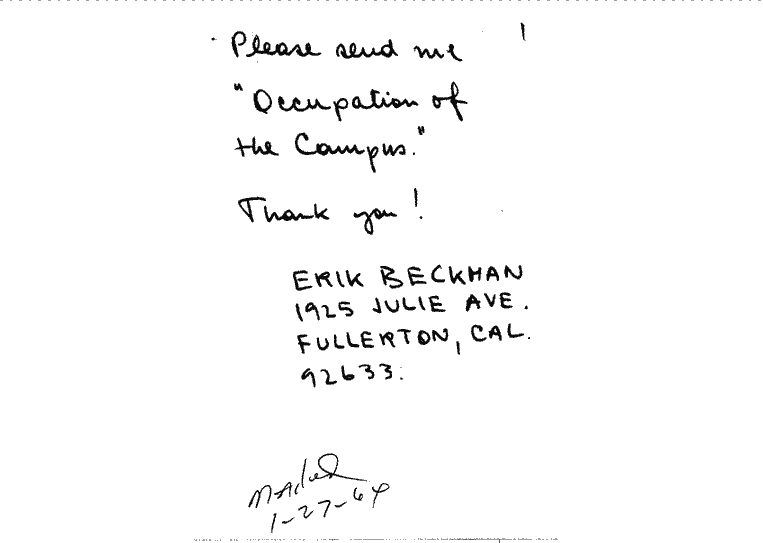 Please send me !
"Occupation of
the Campus."
Thank you!
ERIK BECKMAN
1925 JULIE AVE.
FULLERTON, CAL.
92633.
Mailed
1-27-69